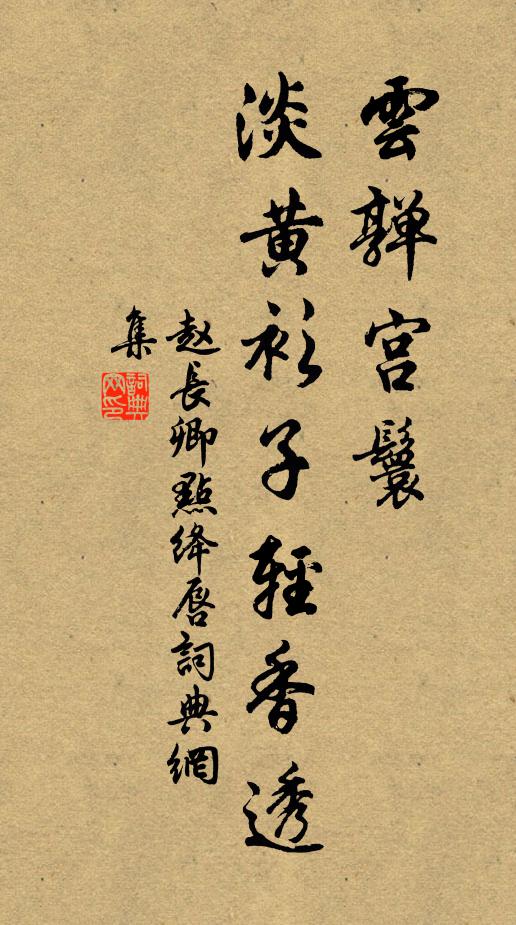 雲嚲宫鬟
淡黄衫子輕香透
赵長卿點绛唇詞典網
集
詞典
网印